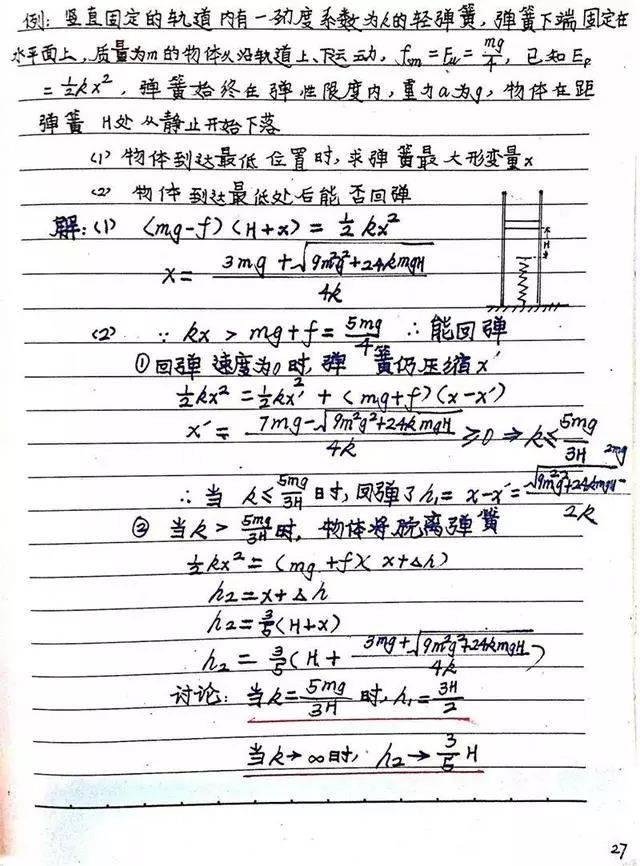 例: 竖直固定的轨道内有一劲度系数为k的轻弹簧, 弹簧下端固定在
水平面上, 质量为m的物体从沿轨道上、下运动, fsm = Fμ = mg/4, 已知 Ep
= ½kx², 弹簧始终在弹性限度内, 重力a为g, 物体在距
弹簧 H处从静止开始下落
(1) 物体到达最低位置时, 求弹簧最大形变量x
(2) 物体到达最低处后能否回弹
解: (1) (mg-f)(H+x) = ½kx²
H
x = (3mg + √(9m²g²+24kmgH))/4k
(2) ∵ kx > mg+f = 5mg/4 ∴ 能回弹
① 回弹速度为0时, 弹簧仍压缩x′
½kx² = ½kx′² + (mg+f)(x-x′)
x′ = (7mg-√(9m²g²+24kmgH))/4k ≥0 ⇒ k ≤ 5mg/3H
∴ 当 k≤5mg/3H时, 回弹了h₁ = x-x′ = (√(9m²g²+24kmgH)-2mg)/2k
② 当k > 5mg/3H时, 物体将脱离弹簧
½kx² = (mg+f)(x+Δh)
h₂ = x+Δh
h₂ = 3/5(H+x)
h₂ = 3/5(H + (3mg+√(9m²g²+24kmgH))/4k)
讨论: 当k = 5mg/3H 时, h₁ = 3H/2
当k→∞时, h₂→3/5 H
27